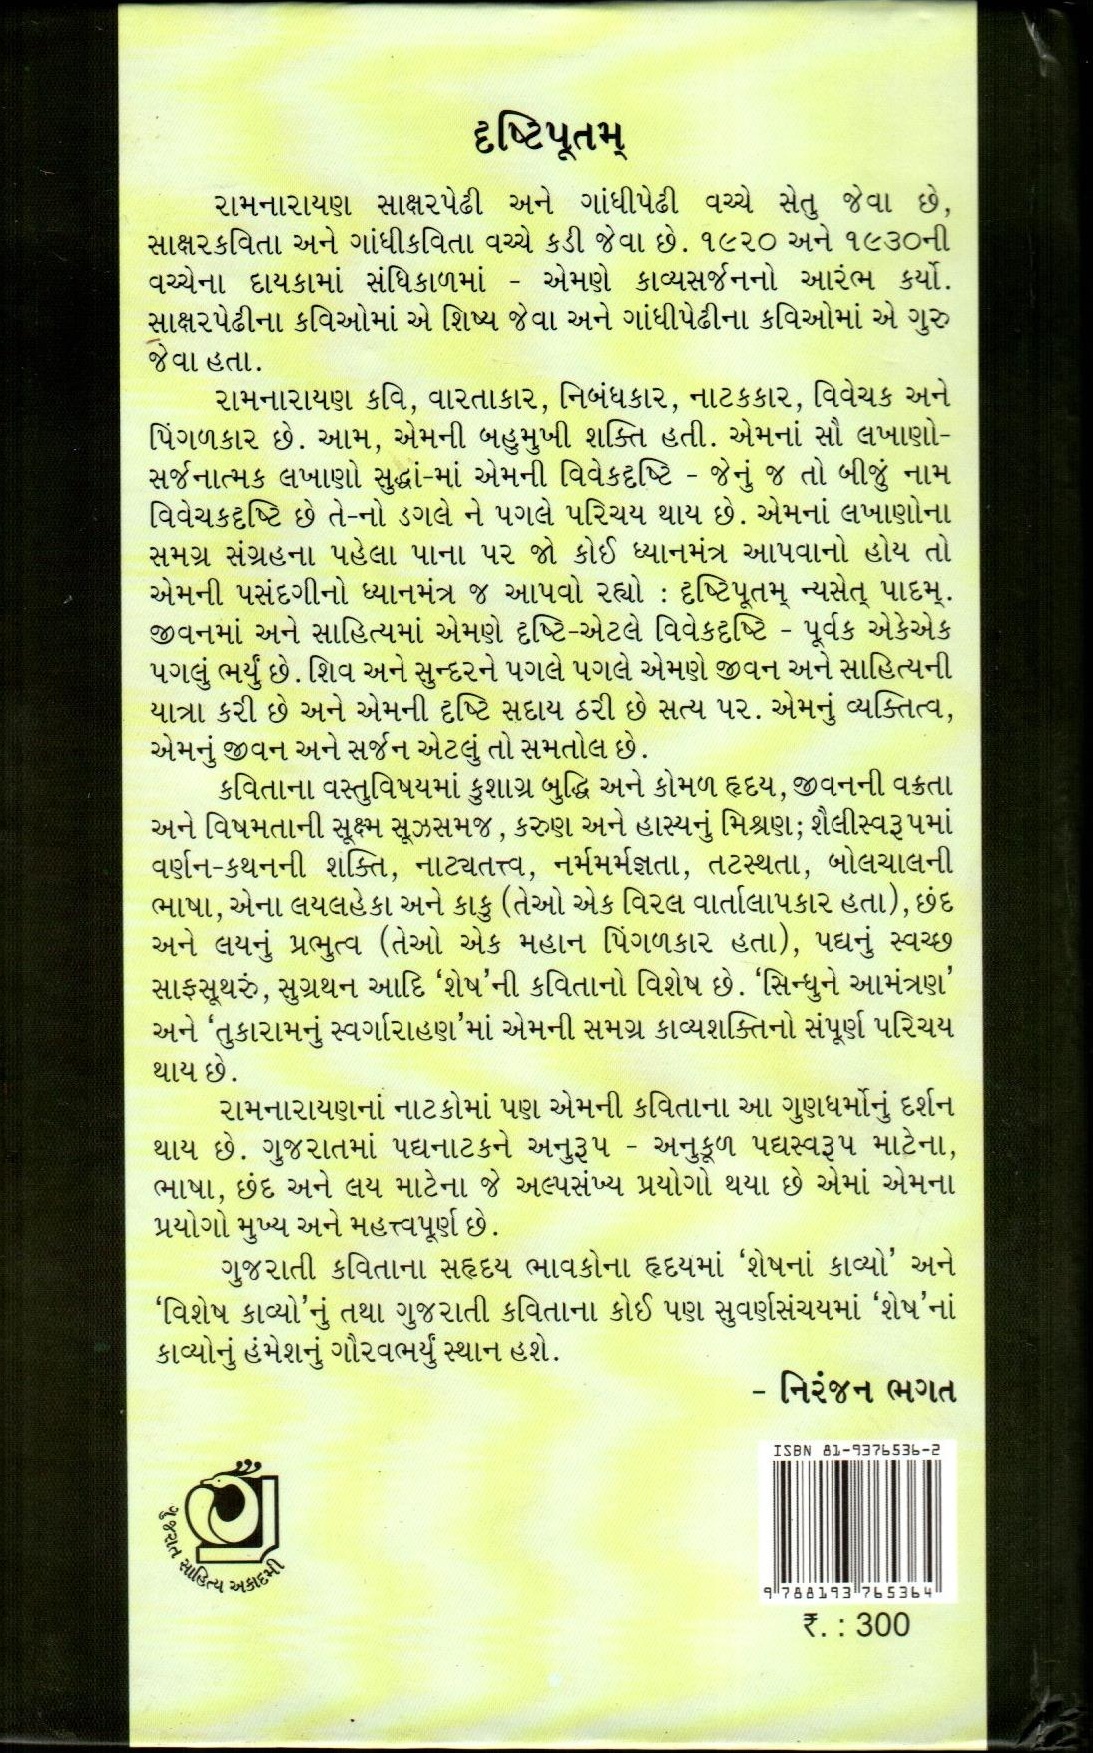 દૃષ્ટિપૂતમ્
રામનારાયણ સાક્ષરપેઢી અને ગાંધીપેઢી વચ્ચે સેતુ જેવા છે,
સાક્ષરકવિતા અને ગાંધીકવિતા વચ્ચે કડી જેવા છે. ૧૯૨૦ અને ૧૯૩૦ની
વચ્ચેના દાયકામાં સંધિકાળમાં - એમણે કાવ્યસર્જનનો આરંભ કર્યો.
સાક્ષરપેઢીના કવિઓમાં એ શિષ્ય જેવા અને ગાંધીપેઢીના કવિઓમાં એ ગુરુ
જેવા હતા.
રામનારાયણ કવિ, વારતાકાર, નિબંધકાર, નાટકકાર, વિવેચક અને
પિંગળકાર છે. આમ, એમની બહુમુખી શક્તિ હતી. એમનાં સૌ લખાણો-
સર્જનાત્મક લખાણો સુદ્ધાં-માં એમની વિવેકદૃષ્ટિ - જેનું જ તો બીજું નામ
વિવેચકદૃષ્ટિ છે તે-નો ડગલે ને પગલે પરિચય થાય છે. એમનાં લખાણોના
સમગ્ર સંગ્રહના પહેલા પાના પર જો કોઈ ધ્યાનમંત્ર આપવાનો હોય તો
એમની પસંદગીનો ધ્યાનમંત્ર જ આપવો રહ્યો : દૃષ્ટિપૂતમ્ ન્યસેત્ પાદમ્.
જીવનમાં અને સાહિત્યમાં એમણે દૃષ્ટિ-એટલે વિવેકદૃષ્ટિ - પૂર્વક એકેએક
પગલું ભર્યું છે. શિવ અને સુન્દરને પગલે પગલે એમણે જીવન અને સાહિત્યની
યાત્રા કરી છે અને એમની દૃષ્ટિ સદાય ઠરી છે સત્ય પર. એમનું વ્યક્તિત્વ,
એમનું જીવન અને સર્જન એટલું તો સમતોલ છે.
કવિતાના વસ્તુવિષયમાં કુશાગ્ર બુદ્ધિ અને કોમળ હૃદય, જીવનની વક્રતા
અને વિષમતાની સૂક્ષ્મ સૂઝસમજ, કરુણ અને હાસ્યનું મિશ્રણ; શૈલીસ્વરૂપમાં
વર્ણન-કથનની શક્તિ, નાટ્યતત્ત્વ, નર્મમર્મજ્ઞતા, તટસ્થતા, બોલચાલની
ભાષા, એના લયલહેકા અને કાકુ (તેઓ એક વિરલ વાર્તાલાપકાર હતા), છંદ
અને લયનું પ્રભુત્વ (તેઓ એક મહાન પિંગળકાર હતા), પદ્યનું સ્વચ્છ
સાફસૂથરું, સુગ્રથન આદિ ‘શેષ’ની કવિતાનો વિશેષ છે. ‘સિન્ધુને આમંત્રણ’
અને ‘તુકારામનું સ્વર્ગારાહણ’માં એમની સમગ્ર કાવ્યશક્તિનો સંપૂર્ણ પરિચય
થાય છે.
રામનારાયણનાં નાટકોમાં પણ એમની કવિતાના આ ગુણધર્મોનું દર્શન
થાય છે. ગુજરાતમાં પદ્યનાટકને અનુરૂપ - અનુકૂળ પદ્યસ્વરૂપ માટેના,
ભાષા, છંદ અને લય માટેના જે અલ્પસંખ્ય પ્રયોગો થયા છે એમાં એમના
પ્રયોગો મુખ્ય અને મહત્ત્વપૂર્ણ છે.
ગુજરાતી કવિતાના સહૃદય ભાવકોના હૃદયમાં ‘શેષનાં કાવ્યો’ અને
‘વિશેષ કાવ્યો’નું તથા ગુજરાતી કવિતાના કોઈ પણ સુવર્ણસંચયમાં ‘શેષ’નાં
કાવ્યોનું હંમેશનું ગૌરવભર્યું સ્થાન હશે.
- નિરંજન ભગત
ISBN 81-9376536-2
9 788193 765364
₹. : 300
ગુજરાત સાહિત્ય અકાદમી